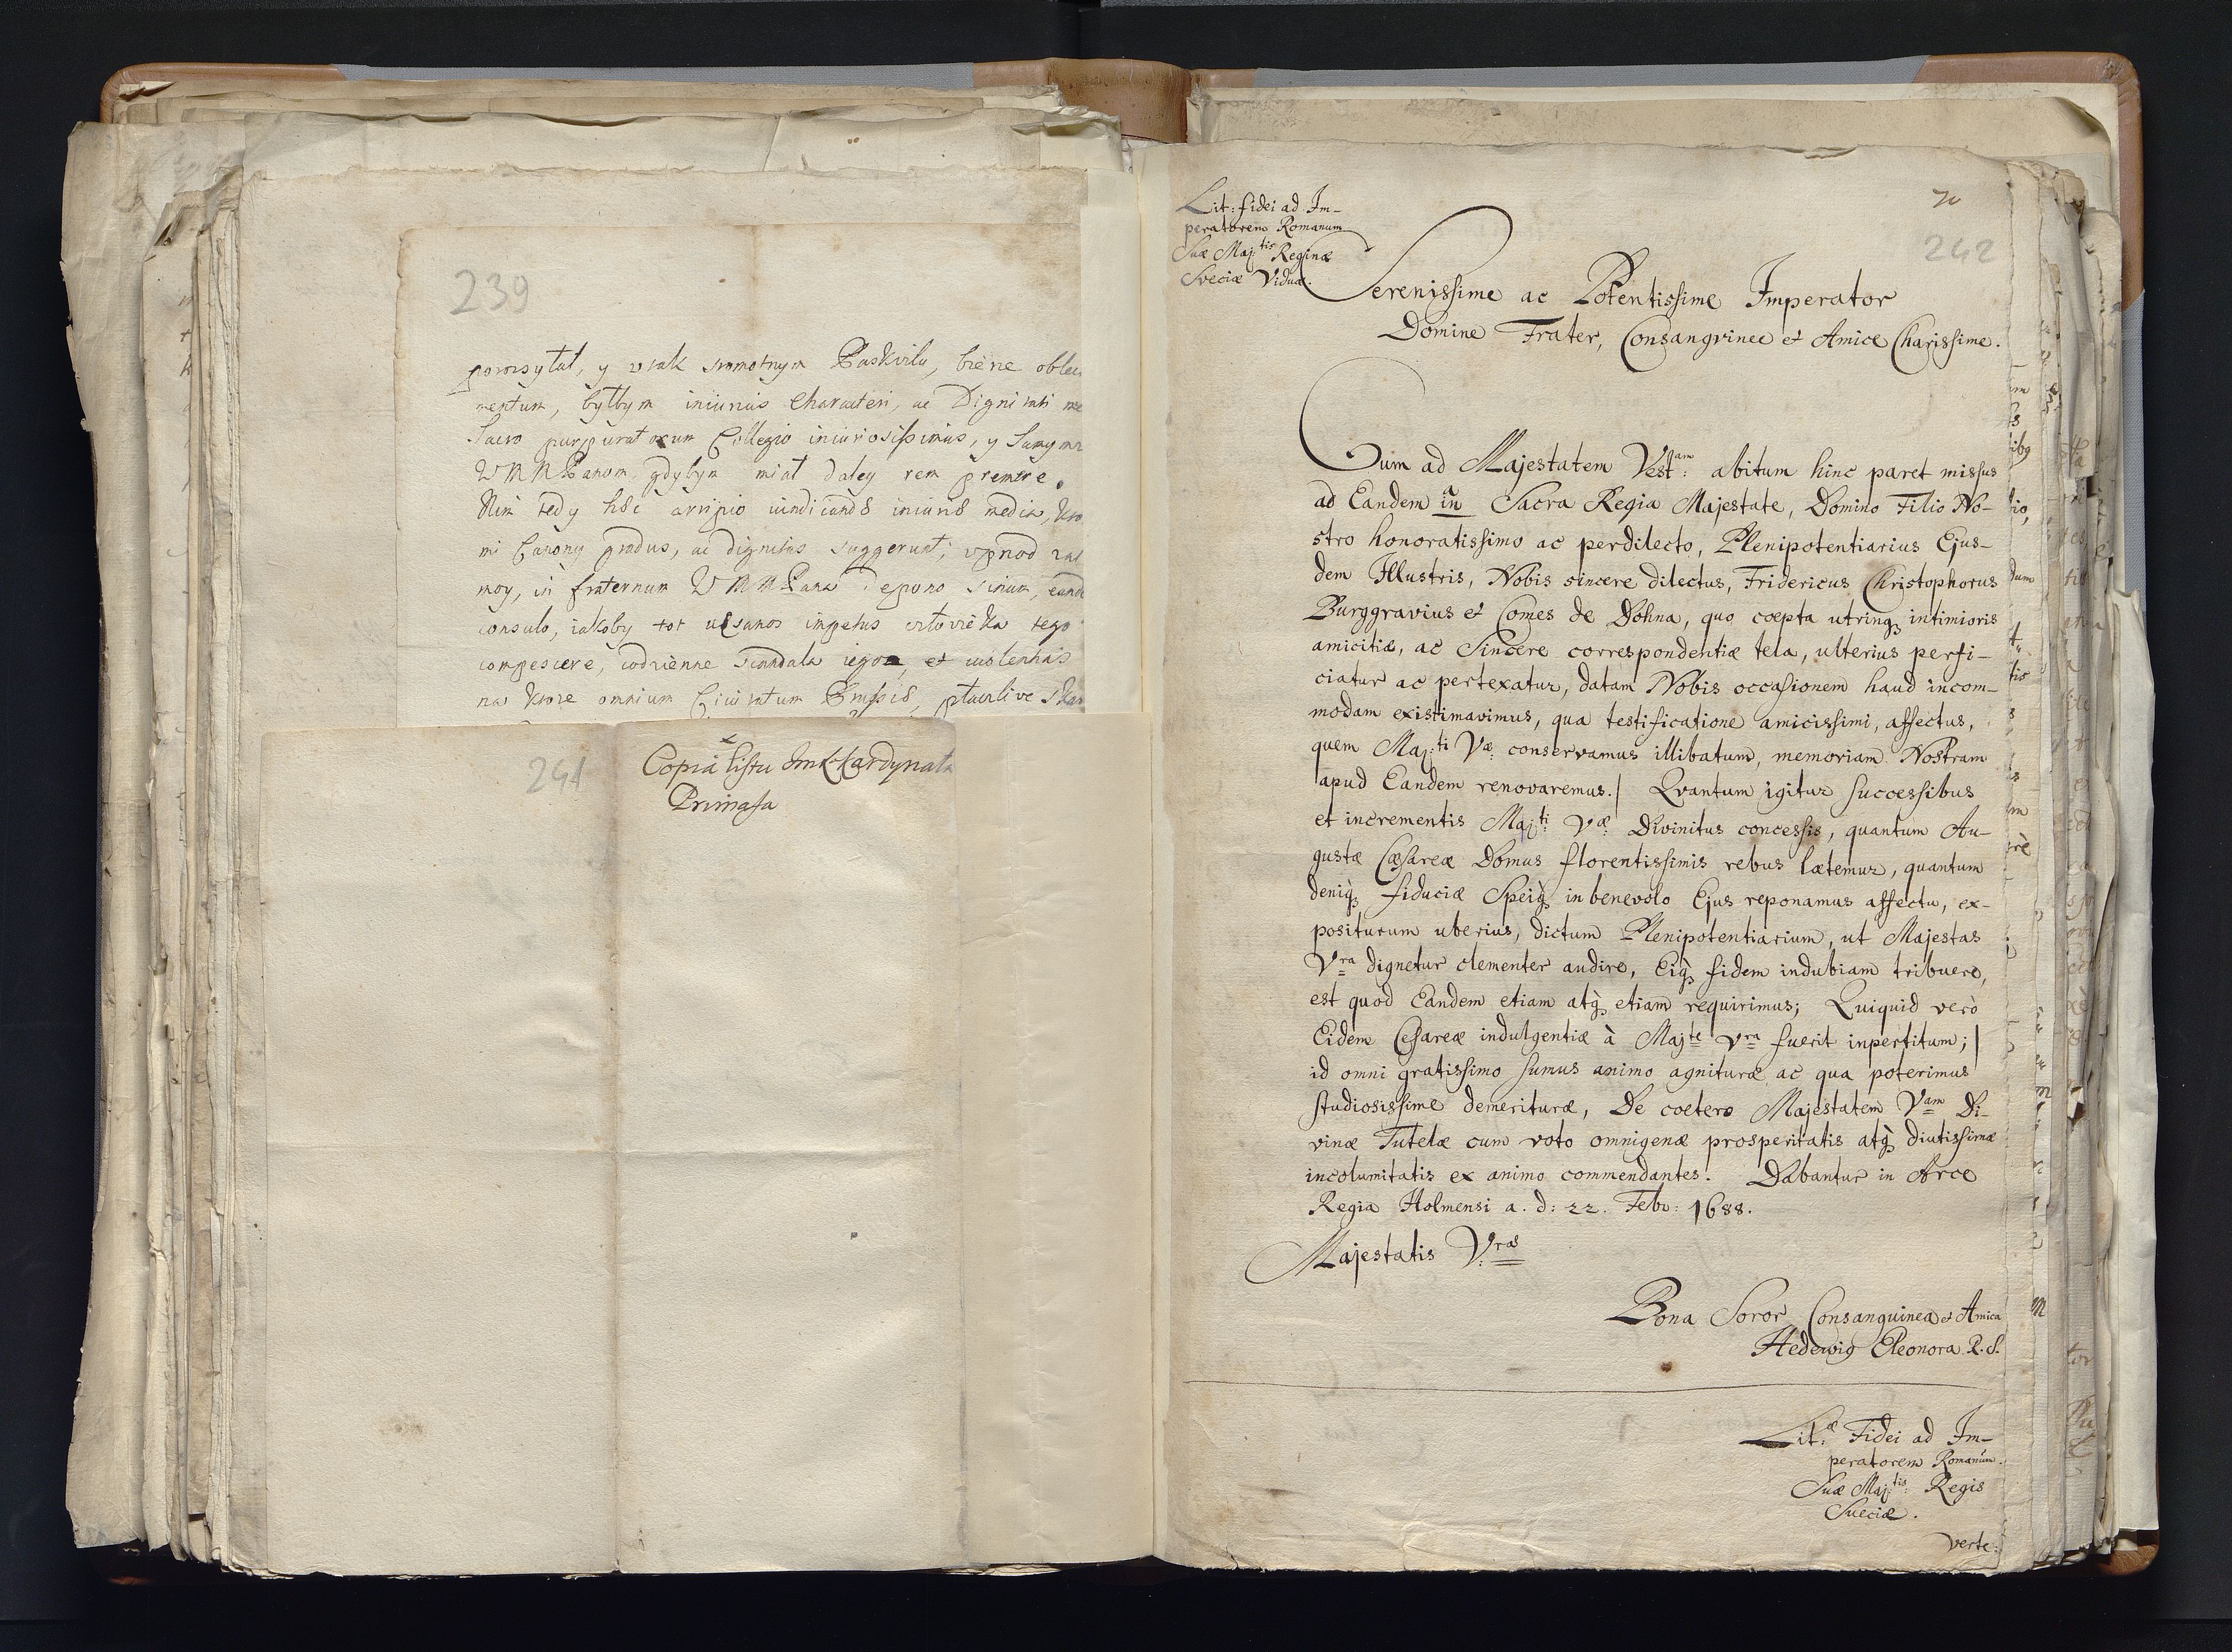 239
pomsytat, y wtak sromotnym Paskvilu,
mentum, bytbym iniurius Characteri, ac Dignitati
Sacro purpuratorum Collegio iniuriosissimus, y Samym
WMM Panom, gdybym miat daley rem premere.
Nim tedy hec arripio uindicands iniuris media,
mi Carony gradus, ac dignitas suggerunt,
moy, in fraternum WMM Pana depono sinum,
consulo, iakoby tot uesanos impetus cztowieka tego
compescere, codzienne scandala iego, et
na kore omnium Ciuitatum
241
Copia listu Kardynata
Primasa
Lit: fidei ad Im-
peratorem Romanum
Suæ Maj:tis Reginæ
Sveciæ Viduæ.
70
242
Serenissime ac Potentissime Imperator
Domine Frater, Consangvinee et Amice Charissime.
Cum ad Majestatem Vest:am abitum hinc paret missus
ad Eandem a Sacra Regia Majestate, Domino Filio No-
stro honoratissimo ac perdilecto, Plenipotentiarius Ejus-
dem Illustris, Nobis sincere dilectus, Fridericus Christophorus
Burggravius et Comes de Dohna, quo coepta utrinq3 intimioris
amicitiæ, ac Sincere correspondentiæ tela, ulterius perfi-
ciatur ac pertexatur, datam Nobis occasionem haud incom-
modam existimavimus, qua testificatione amicissimi, affectus,
quem Maj:ti Væ conservamus illibatum, memoriam Nostram
apud Eandem renovaremus.| Qvantum igitur successibus
et incrementis Maj:ti Væ: Divinitus concessis, quantum Au-
gustæ Cæsareæ Domus florentissimis rebus lætemur, quantum
deniq3 fiduciæ Speiq3 in benevolo Ejus reponamus affectu, ex-
positurum uberius, dictum Plenipotentiarium, ut Majestas
Vra dignetur clementer audire, Eiq3 fidem indubiam tribuere,
est quod Eandem etiam atq3 etiam requirimus; Quiquid verò
Eidem Cesareæ indulgentiæ à Majte Vra fuerit inpertitum;|
id omni gratissimo sumus animo agnituræ ac qua poterimus
studiosissime demerituræ, De coetero Majestatem Vam Di-
vinæ Tutelæ cum voto omnigenæ prosperitatis atq3 diutissimæ
incolumitatis ex animo commendantes. Dabantur in Arce
Regia Holmensi a. d: 22. Febr: 1688.
Majestatis Vræ
Bona Soror, Consanguinea et Amica
Hedewig Eleonora R. S.
Lit:æ Fidei ad Im-
peratorem Romanum.
Suæ Maj:tis: Regis
Sueciæ.
verte: